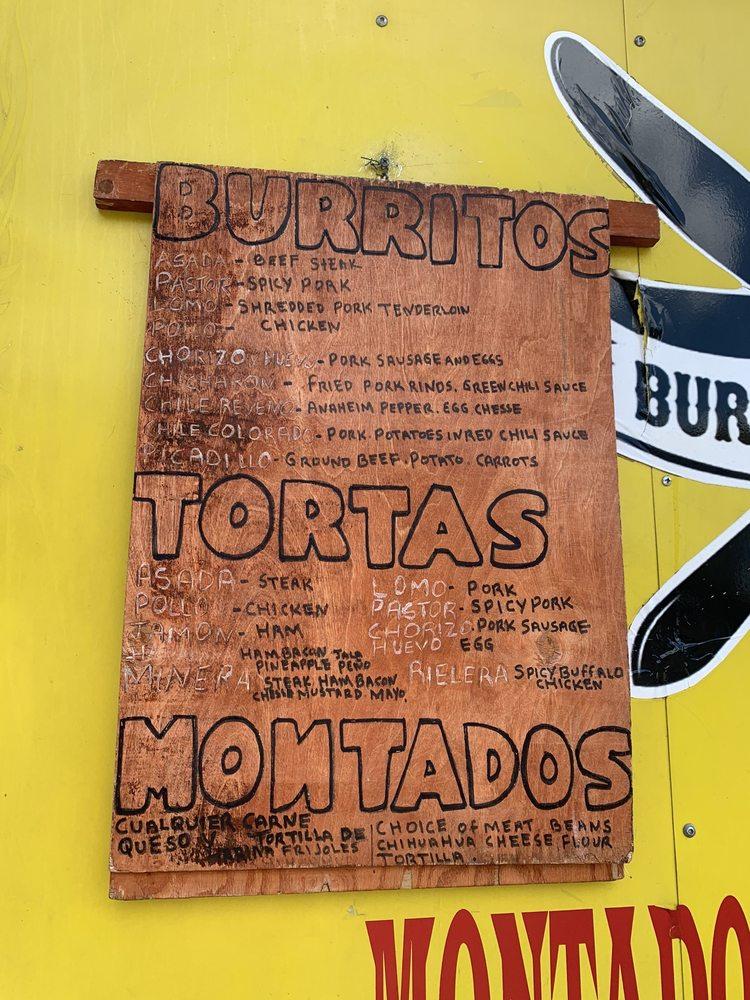 BURRITOS
ASADA - BEEF STEAK
PASTOR - SPICY PORK
LOMO - SHREDDED PORK TENDERLOIN
POLLO - CHICKEN
CHORIZO HUEVO - PORK SAUSAGE AND EGGS
CHICHARON - FRIED PORK RINDS. GREEN CHILI SAUCE
CHILE REYENO - ANAHEIM PEPPER. EGG CHESSE
CHILE COLORADO - PORK POTATOES IN RED CHILI SAUCE
PICADILLO - GROUND BEEF. POTATO. CARROTS
TORTAS
ASADA - STEAK
POLLO - CHICKEN
JAMON - HAM
HAM BACON JALA
PINEAPPLE PEÑO
MINERA STEAK. HAM BACON
CHESSE MUSTARD MAYO.
LOMO - PORK
PASTOR - SPICY PORK
CHORIZO PORK SAUSAGE
HUEVO EGG
RIELERA SPICY BUFFALO
CHICKEN
MONTADOS
CUALQUIER CARNE
QUESO Y TORTILLA DE
HARINA FRIJOLES
CHOICE OF MEAT. BEANS
CHIHUAHUA CHEESE FLOUR
TORTILLA.
BUR
MONTADO